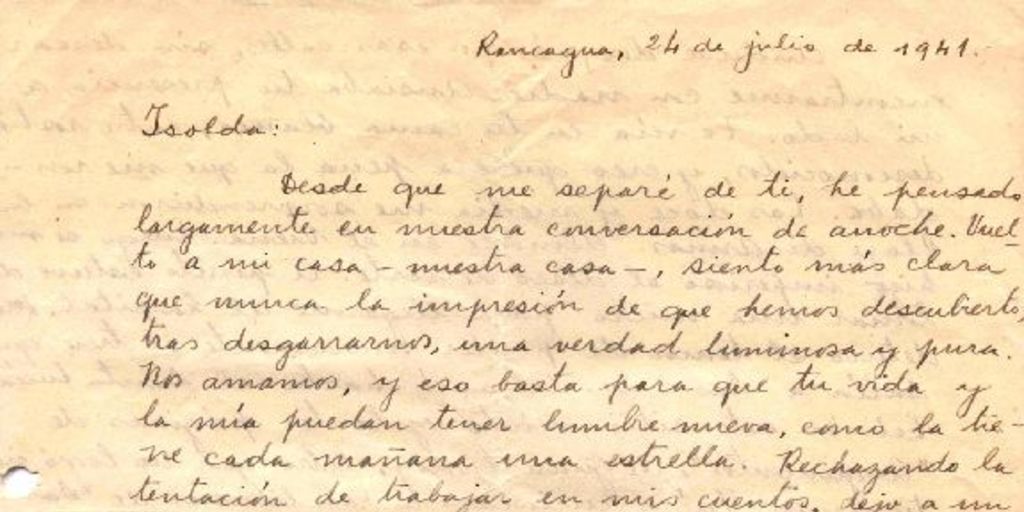 Rancagua, 24 de julio de 1941.
Isolda:
Desde que me separé de ti, he pensado
largamente en nuestra conversación de anoche. Vuel-
to a mi casa – nuestra casa –, siento más clara
que nunca la impresión de que hemos descubierto,
tras desgarrarnos, una verdad luminosa y pura.
Nos amamos, y eso basta para que tu vida y
la mía puedan tener lumbre nueva, como la tie-
ne cada mañana una estrella. Rechazando la
tentación de trabajar en mis cuentos, dejo a un